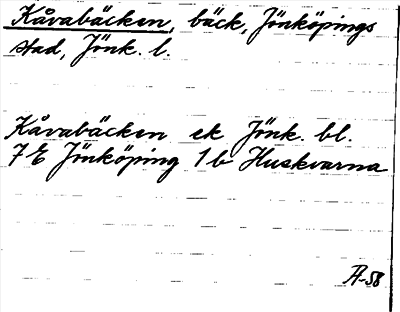 Kåvabäcken, bäck, Jönköpings
stad, Jönk. l.
Kåvabäcken ek Jönk. bl.
7E Jönköping 1b Huskvarna
A-58